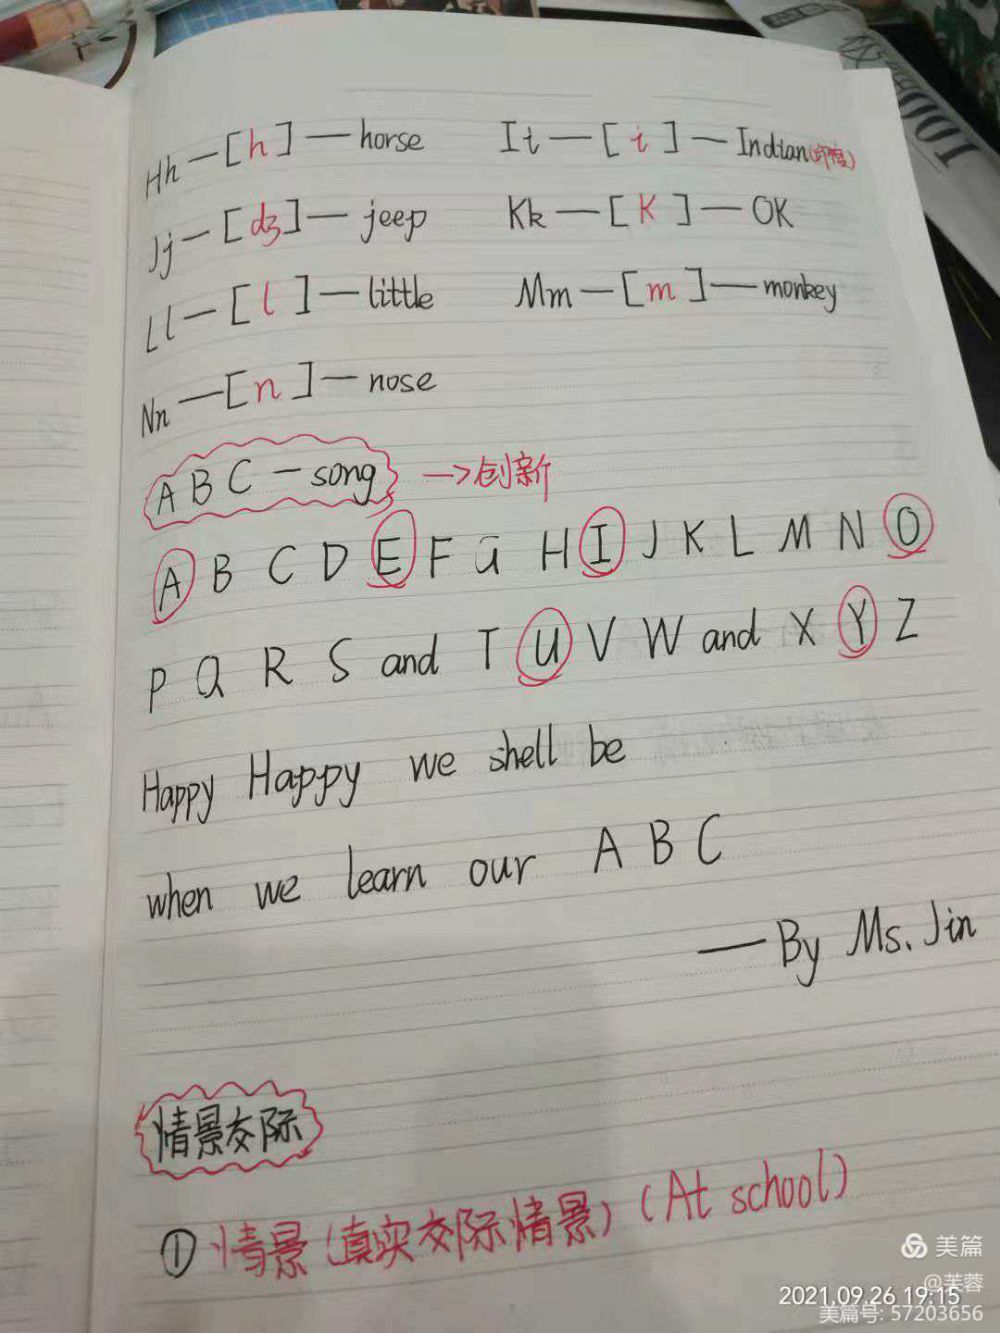 Hh—[h]—horse Ii—[i]—Indian(印度)
Jj—[dʒ]—jeep Kk—[K]—OK
Ll—[l]—little Mm—[m]—monkey
Nn—[n]—nose
ABC—song →创新
A B C D E F G H I J K L M N O
P Q R S and T U V W and X Y Z
Happy Happy we shell be
when we learn our A B C
—By Ms. Jin
情景交际
①情景(真实交际情景)(At school)
美篇
@芙蓉
2021.09.26 19:15
美篇号: 57203656